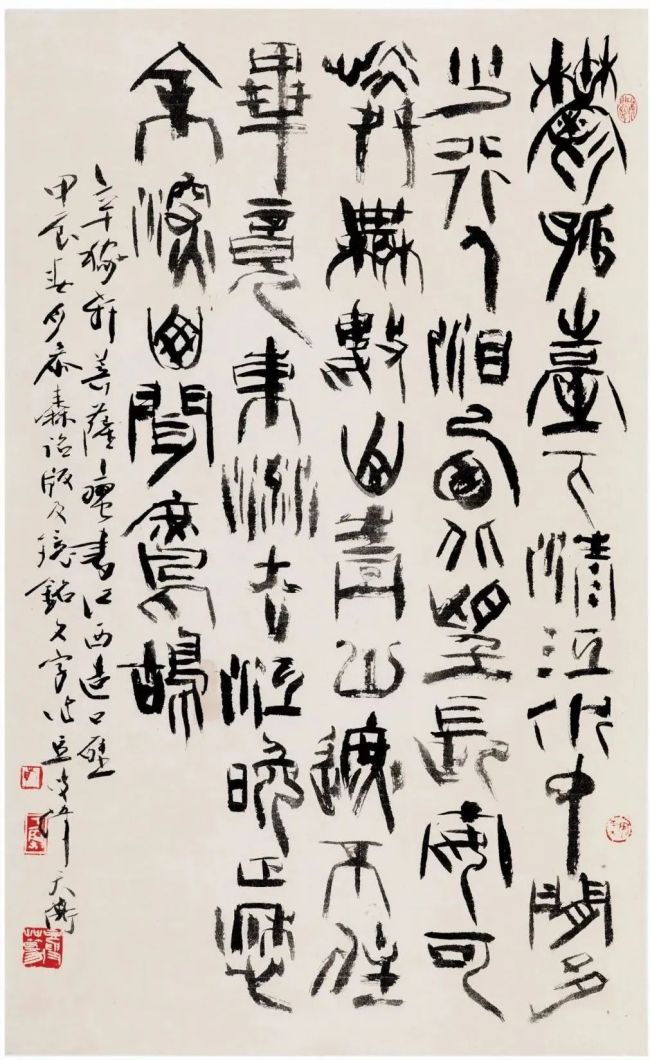 鬱孤臺下清江水中間多
少行人淚西北望長安可
憐無數山青山遮不住
畢竟東流去江晚正愁
余深山聞鷓鴣
辛稼軒菩薩蠻書江西造口壁
甲辰春月參秦詔版及鏡銘文字作豆天衡